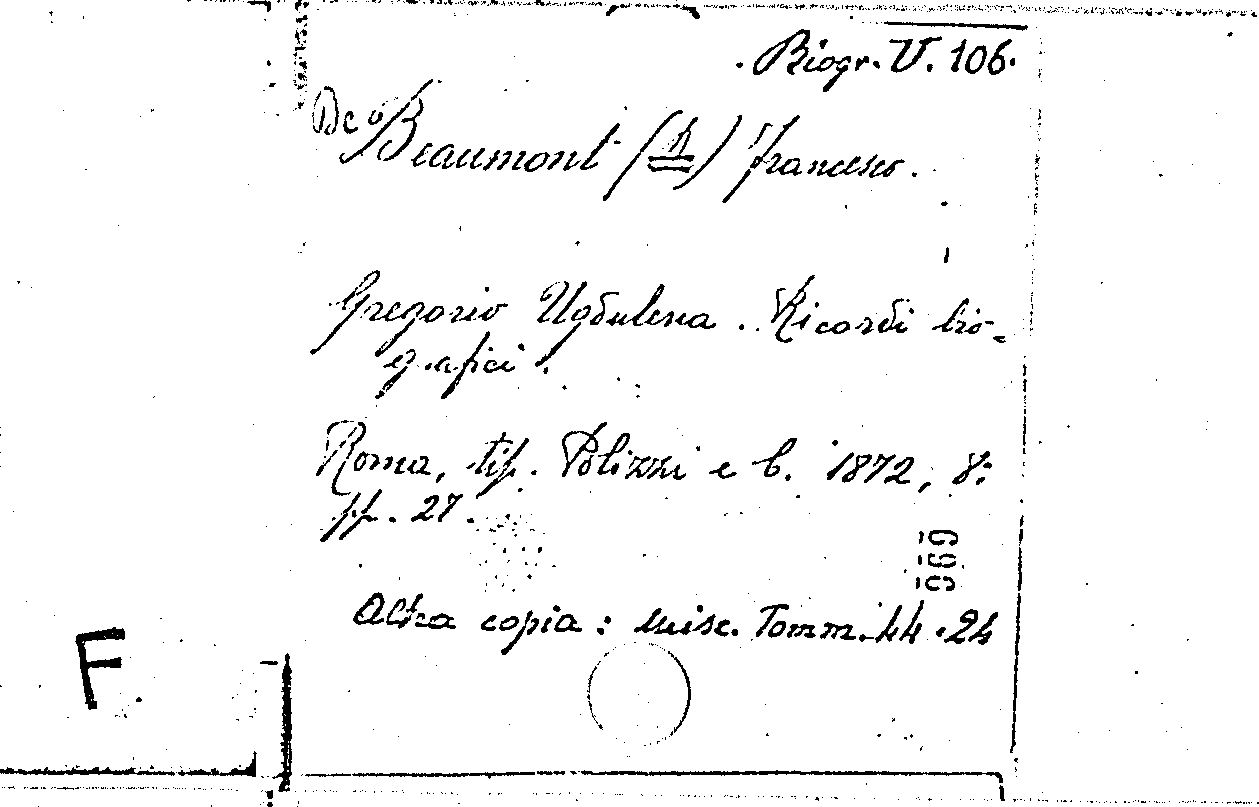 Biogr. V. 106.
De Beaumont () Francesco.
Gregorio Ugdulena. Ricordi bio-
grafici.
Roma, tip. Polizzi e b. 1872, 8:
pp. 27.
969
Altra copia: Misc. Tomm. 44.24
F